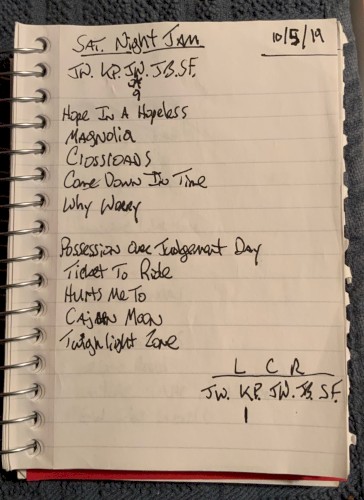 SAT. Night JAM
10/5/19
JW. KP. JW. JB. SF.
9
Hope In A Hopeless
MAgNoliA
CROSSROADS
Come Down In Time
Why Worry
Possession Over Judgement Day
Ticket To Ride
Hurts Me To
CAjUN Moon
Twighlight Zone
L C R
JW. KP. JW. JB. SF.
1